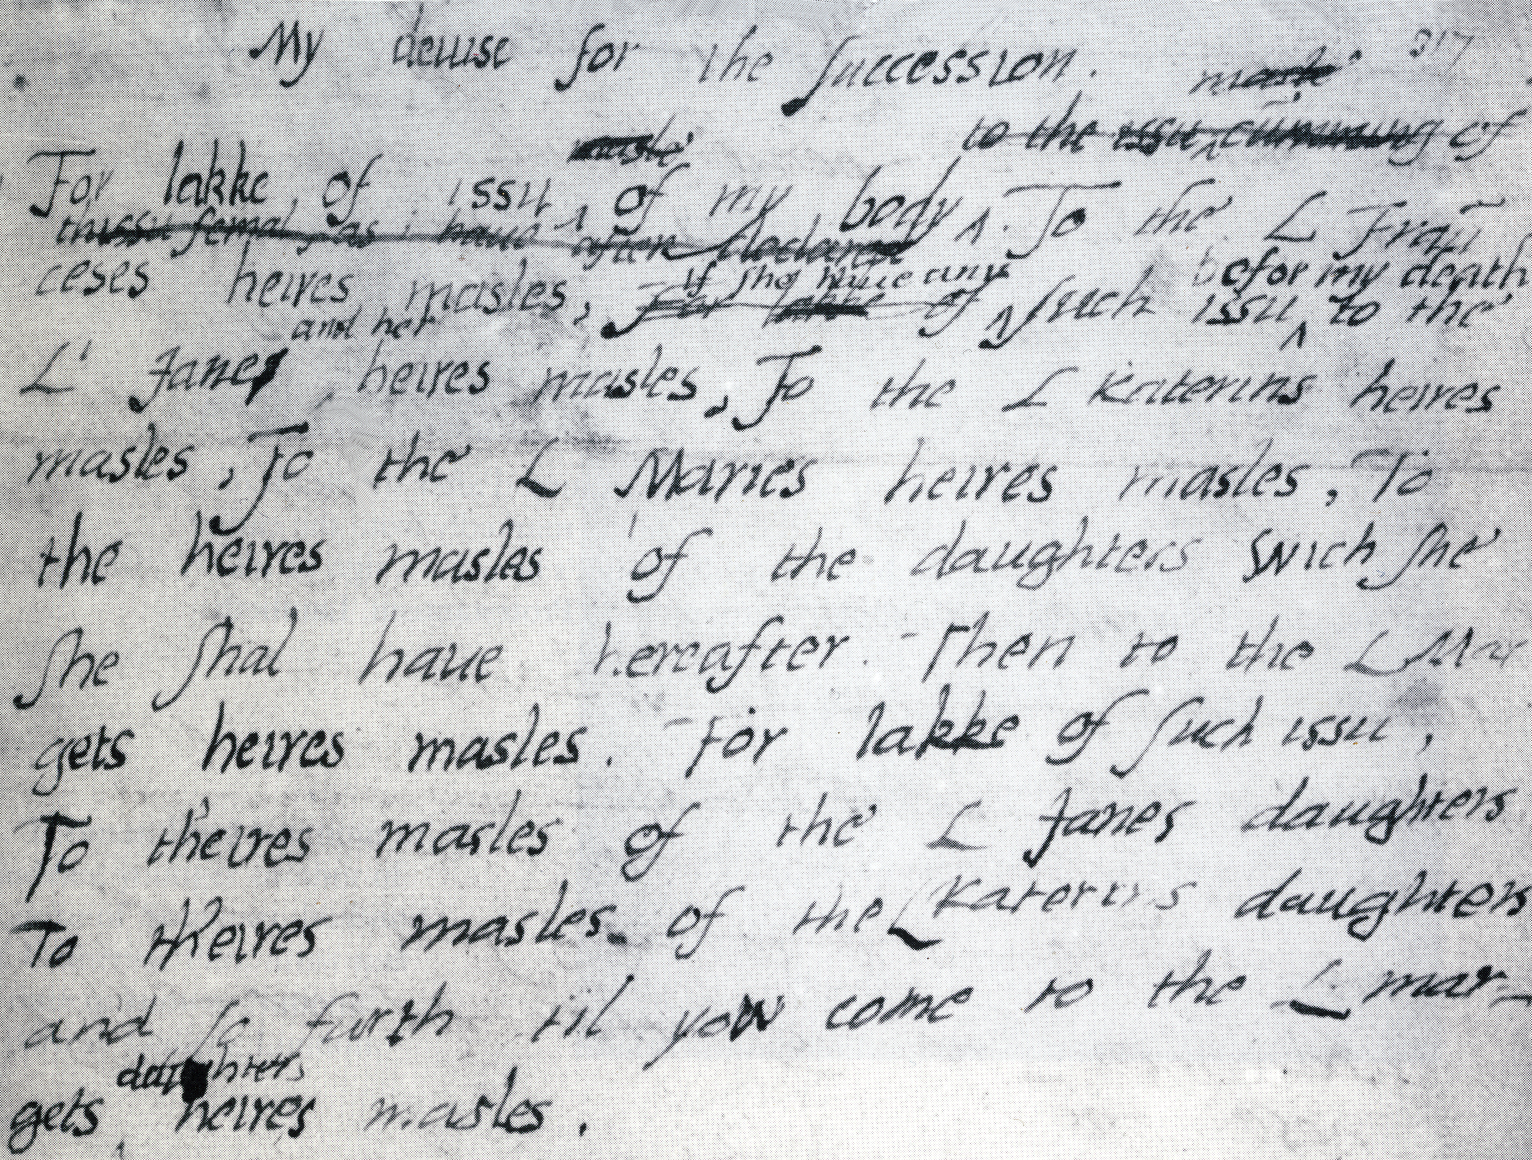 My deuise for the succession. 317
masle
to the issu cumming of
masle
For lakke of issu of my body. To the L Fraun
thissu femal, as i haue after declared
ceses heires masles, For lakke of if she haue any such issu befor my death to the
L' Janes and her heires masles, To the L Katerins heires
masles, To the L Maries heires masles, To
the heires masles of the daughters wich she
she shal haue hereafter. Then to the L Mar
gets heires masles. For lakke of such issu,
To theires masles of the L Janes daughters
To theires masles of the L Katerins daughters
and so forth til yow come to the L mar-
gets daughters heires masles.